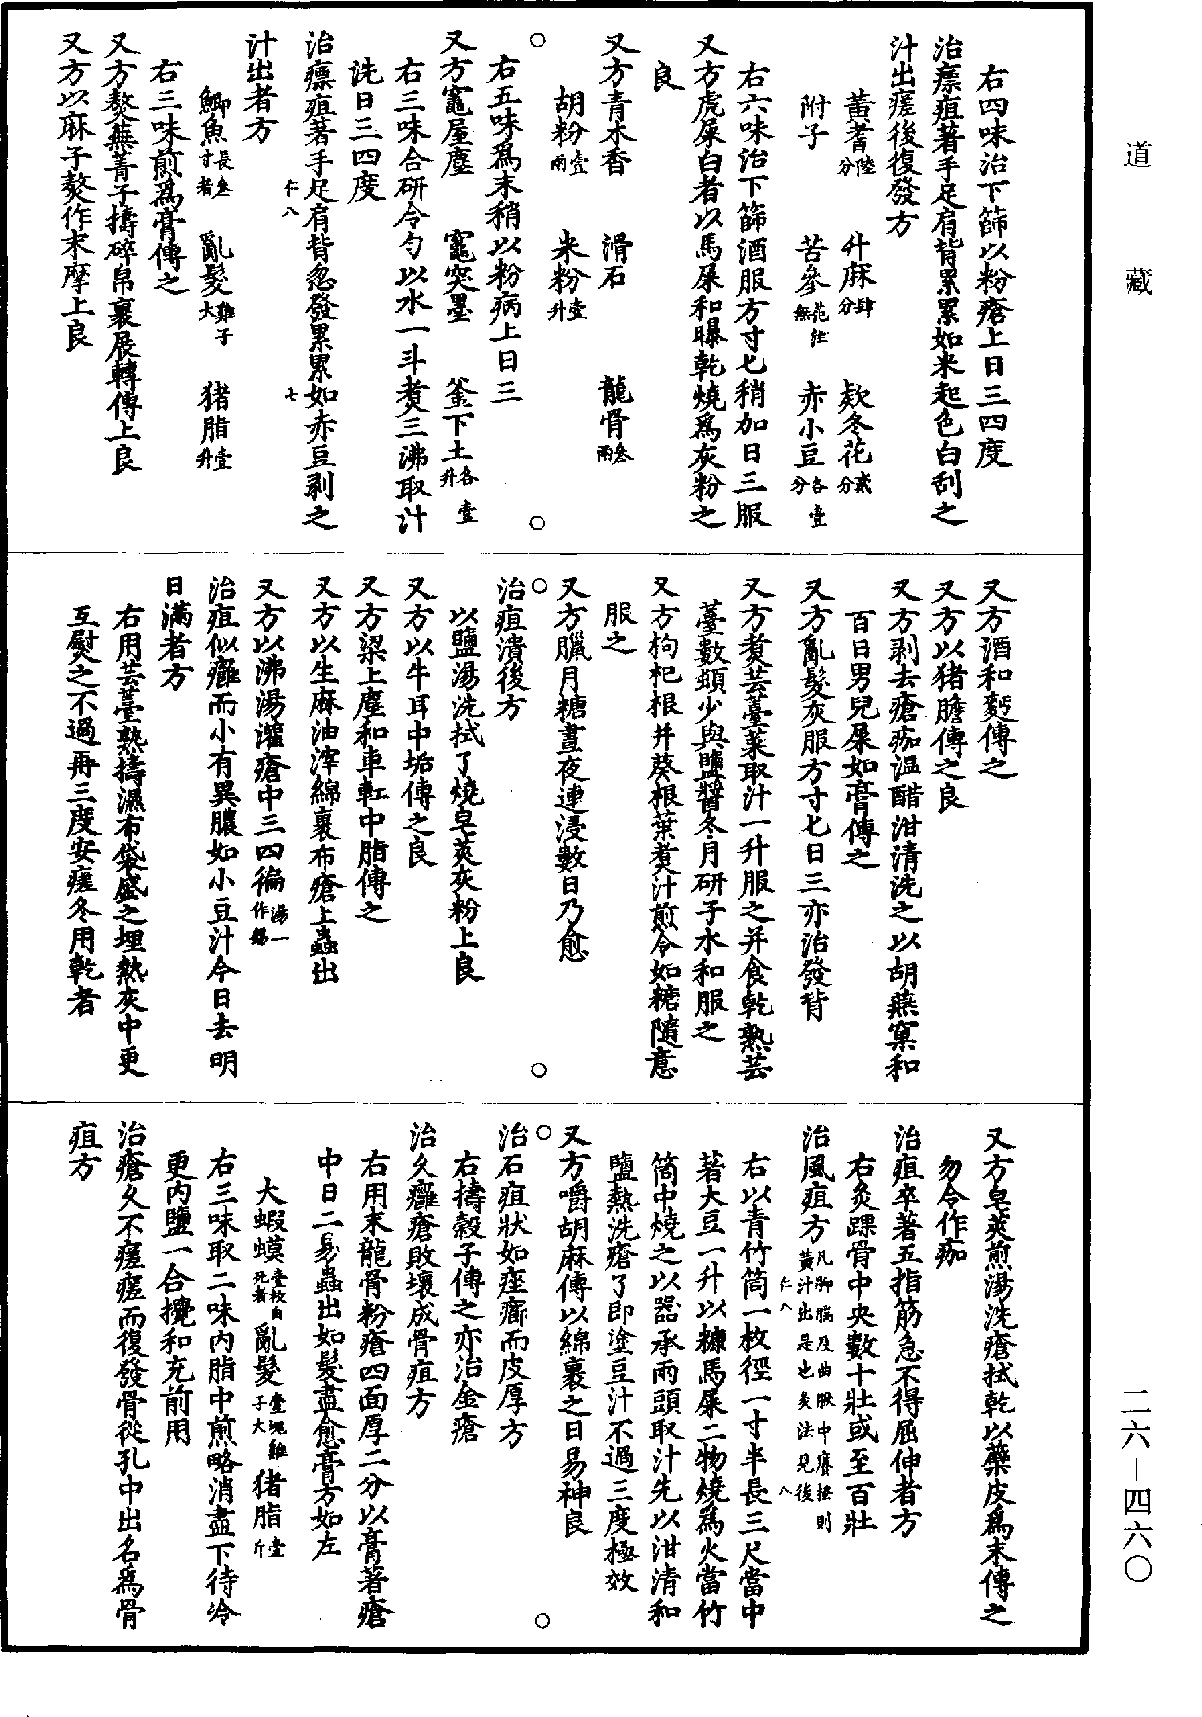 道藏
右四味治下篩以粉瘡上日三四度
治瘭疽著手足肩背累累如米起色白刮之
汁出瘥後復發方
黃耆陸分 升麻肆分 款冬花貳分
附子 苦參花注無 赤小豆各壹分
右六味治下篩酒服方寸七稍加日三服
又方虎屎白者以馬屎和曝乾燒爲灰粉之
良
又方青木香 滑石 龍骨各叁兩
胡粉壹兩 米粉壹升
右五味爲末稍以粉病上日三
又方竈屋塵 竈突墨 釜下土各壹升
右三味合研令勻以水一斗煑三沸取汁
洗日三四度
治瘭疽著手足肩背忽發累累如赤豆剥之
汁出者方
鯽魚長叁寸者 亂髮雞子大 猪脂壹升
右三味煎爲膏傅之
又方熬蕪菁子擣碎帛裹展轉傅上良
又方以麻子熬作末摩上良
仁八 七
又方酒和麪傅之
又方以猪膽傅之良
又方剥去瘡痂温醋泔清洗之以胡燕窠和
百日男兒屎如膏傅之
又方亂髮灰服方寸七日三亦治發背
又方煑芸薹菜取汁一升服之并食乾熟芸
薹數頓少與鹽醬冬月研子水和服之
又方枸杞根并葵根葉煑汁煎令如糖隨意
服之
又方臘月糖晝夜連浸數日乃愈
治疽潰後方
以鹽湯洗拭了燒皂莢灰粉上良
又方以牛耳中垢傅之良
又方梁上塵和車釭中脂傅之
又方以生麻油滓綿裹布瘡上蟲出
又方以沸湯灌瘡中三四徧湯一作餳
治疽似癰而小有異膿如小豆汁今日去明
日滿者方
右用芸薹熟擣濕布袋盛之埋熱灰中更
互熨之不過再三度安瘥冬用乾者
又方皂莢煎湯洗瘡拭乾以蘗皮爲末傅之
勿令作痂
治疽卒著五指筋急不得屈伸者方
右灸踝骨中央數十壯或至百壯
治風疽方凡脚腨及曲脷中癢搔則黃汁出是也灸法見後
右以青竹筒一枚徑一寸半長三尺當中
著大豆一升以糠馬屎二物燒爲火當竹
筒中燒之以器承兩頭取汁先以泔清和
鹽熱洗瘡了即塗豆汁不過三度極效
又方嚼胡麻傅以綿裹之日易神良
治石疽狀如痤癤而皮厚方
右擣穀子傅之亦治金瘡
治久癰瘡敗壞成骨疽方
右用末龍骨粉瘡四面厚二分以膏著瘡
中日二易蟲出如髮盡愈膏方如左
大蝦蟆壹枚自死者 亂髮壹塊雞子大 猪脂壹斤
右三味取二味内脂中煎略消盡下待冷
更内鹽一合攪和充前用
治瘡久不瘥瘥而復發骨從孔中出名爲骨
疽方
仁八 八
二六-四六〇